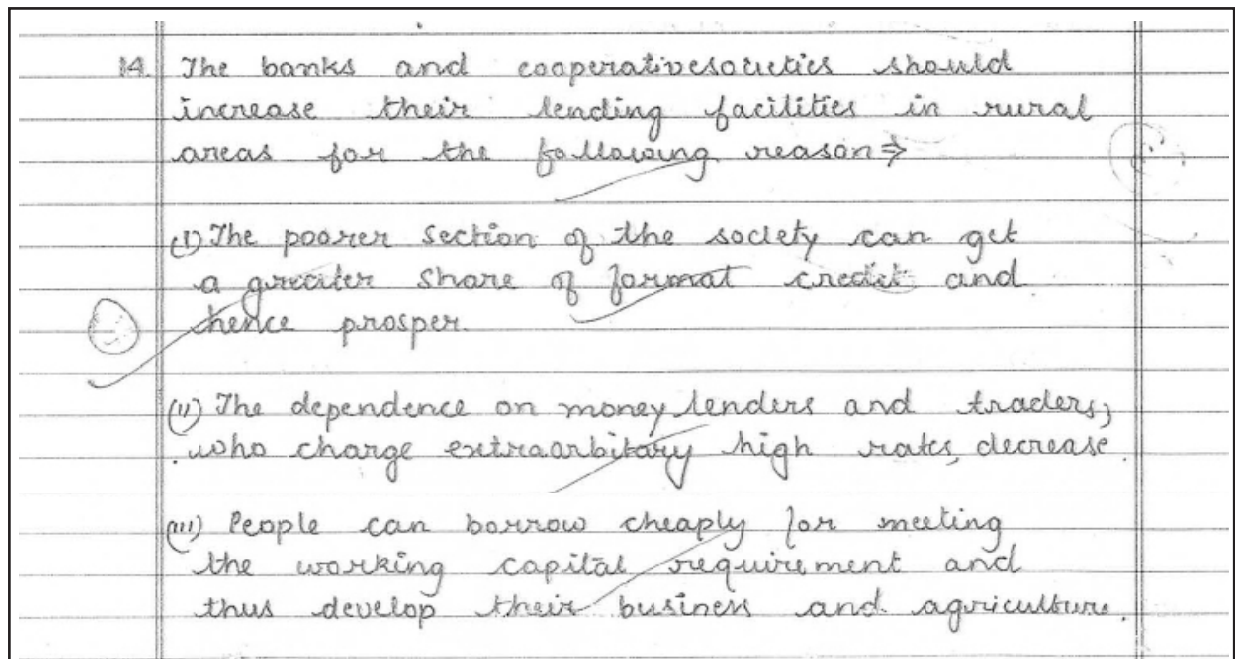 14. The banks and cooperativesocieties should
increase their lending facilities in rural
areas for the following reason⇒
(I) The poorer section of the society can get
a greater share of format credit and
hence prosper.
(II) The dependence on money lenders and traders,
who charge extraarbitary high rates, decrease.
(III) People can borrow cheaply for meeting
the working capital requirement and
thus develop their business and agriculture.